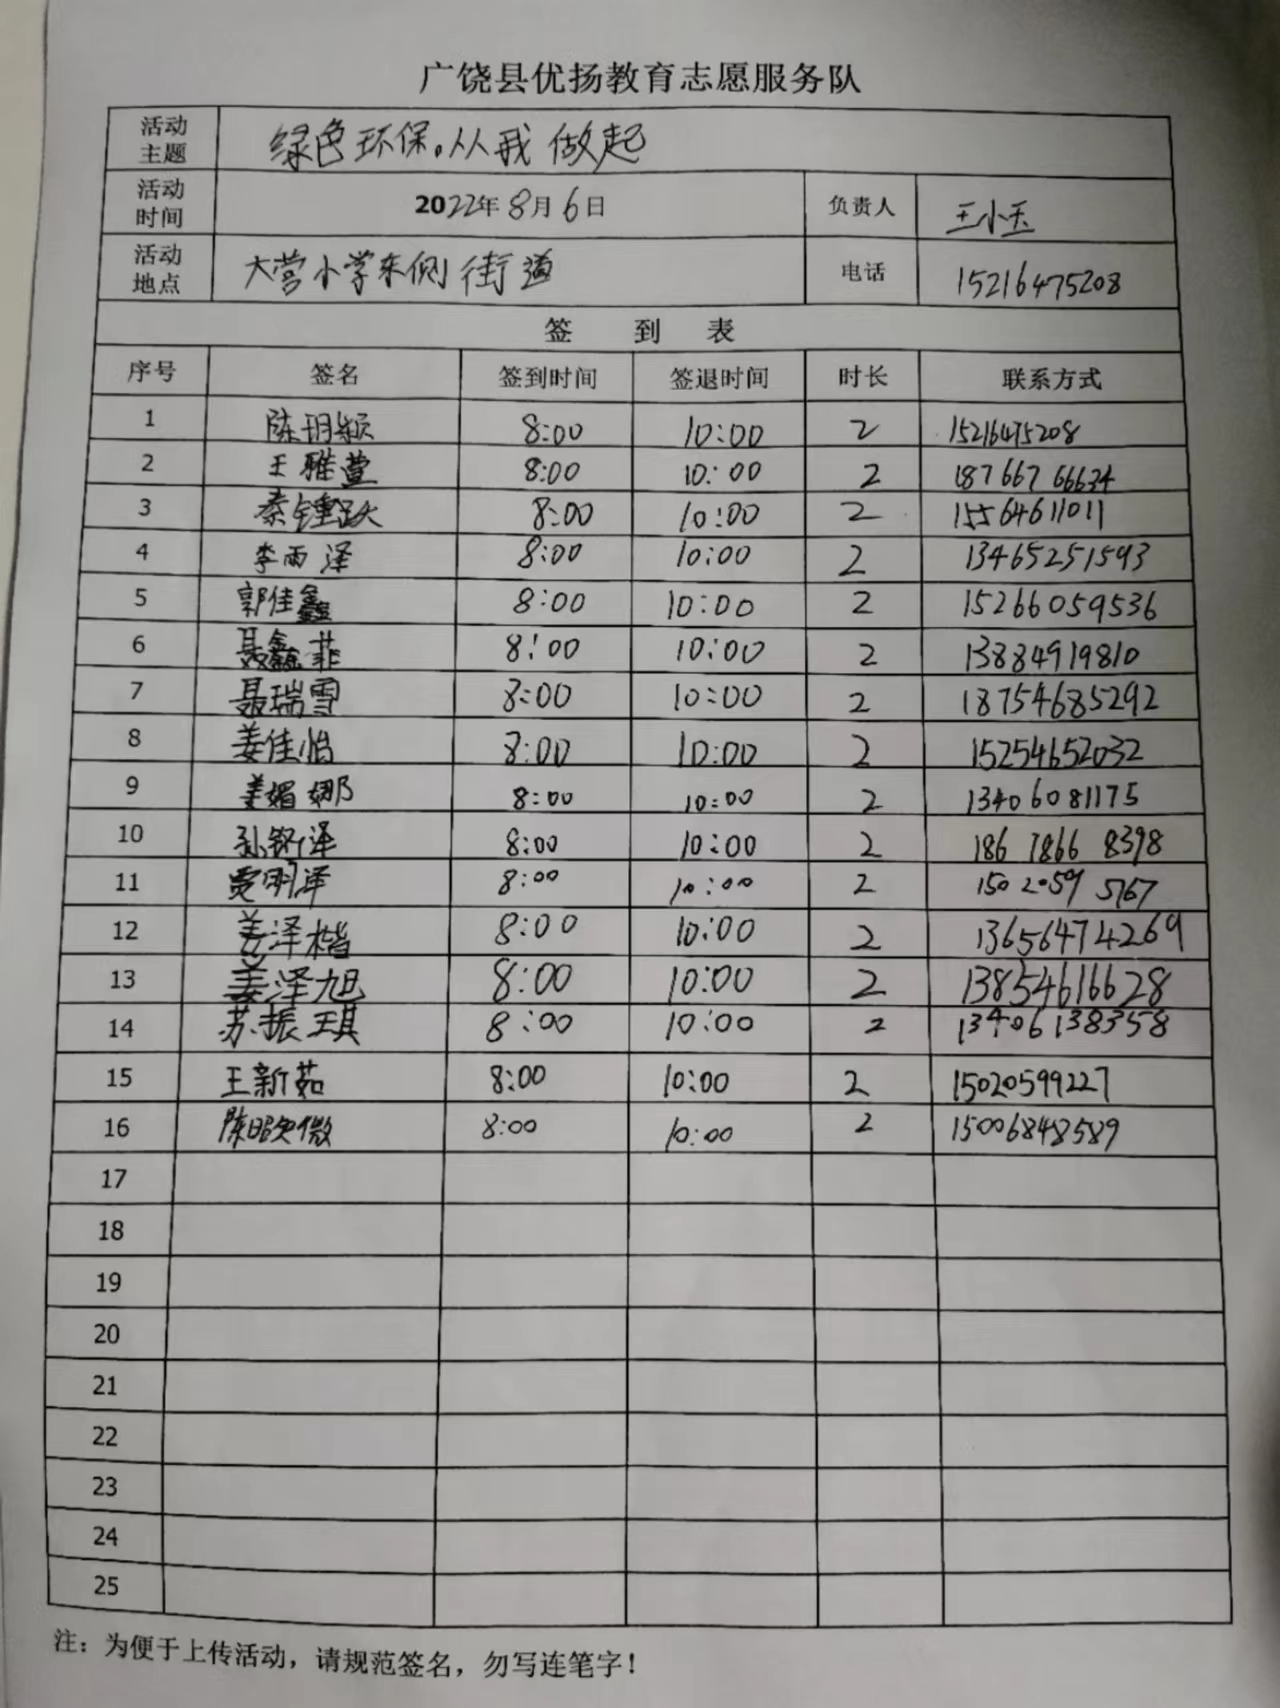 广饶县优扬教育志愿服务队
活动主题 绿色环保。从我做起
活动时间 2022年8月6日 负责人 王小玉
活动地点 大营小学东侧街道 电话 15216475208
签到表
序号 签名 签到时间 签退时间 时长 联系方式
1 陈玥颖 8:00 10:00 2 15216475208
2 王雅萱 8:00 10:00 2 18766766634
3 秦锺跃 8:00 10:00 2 15564611011
4 李雨泽 8:00 10:00 2 13465251593
5 郭佳鑫 8:00 10:00 2 15266059536
6 聂鑫菲 8:00 10:00 2 13884919810
7 聂瑞雪 8:00 10:00 2 18754685292
8 姜佳怡 8:00 10:00 2 15254652032
9 姜媚娜 8:00 10:00 2 13406081175
10 孙铭泽 8:00 10:00 2 186 7866 8398
11 贾明泽 8:00 10:00 2 150 2059 5767
12 姜泽楷 8:00 10:00 2 13656474269
13 姜泽旭 8:00 10:00 2 13854616628
14 苏振琪 8:00 10:00 2 13406138358
15 王新茹 8:00 10:00 2 15020599227
16 陈昭微 8:00 10:00 2 15006848589
17
18
19
20
21
22
23
24
25
注：为便于上传活动，请规范签名，勿写连笔字！